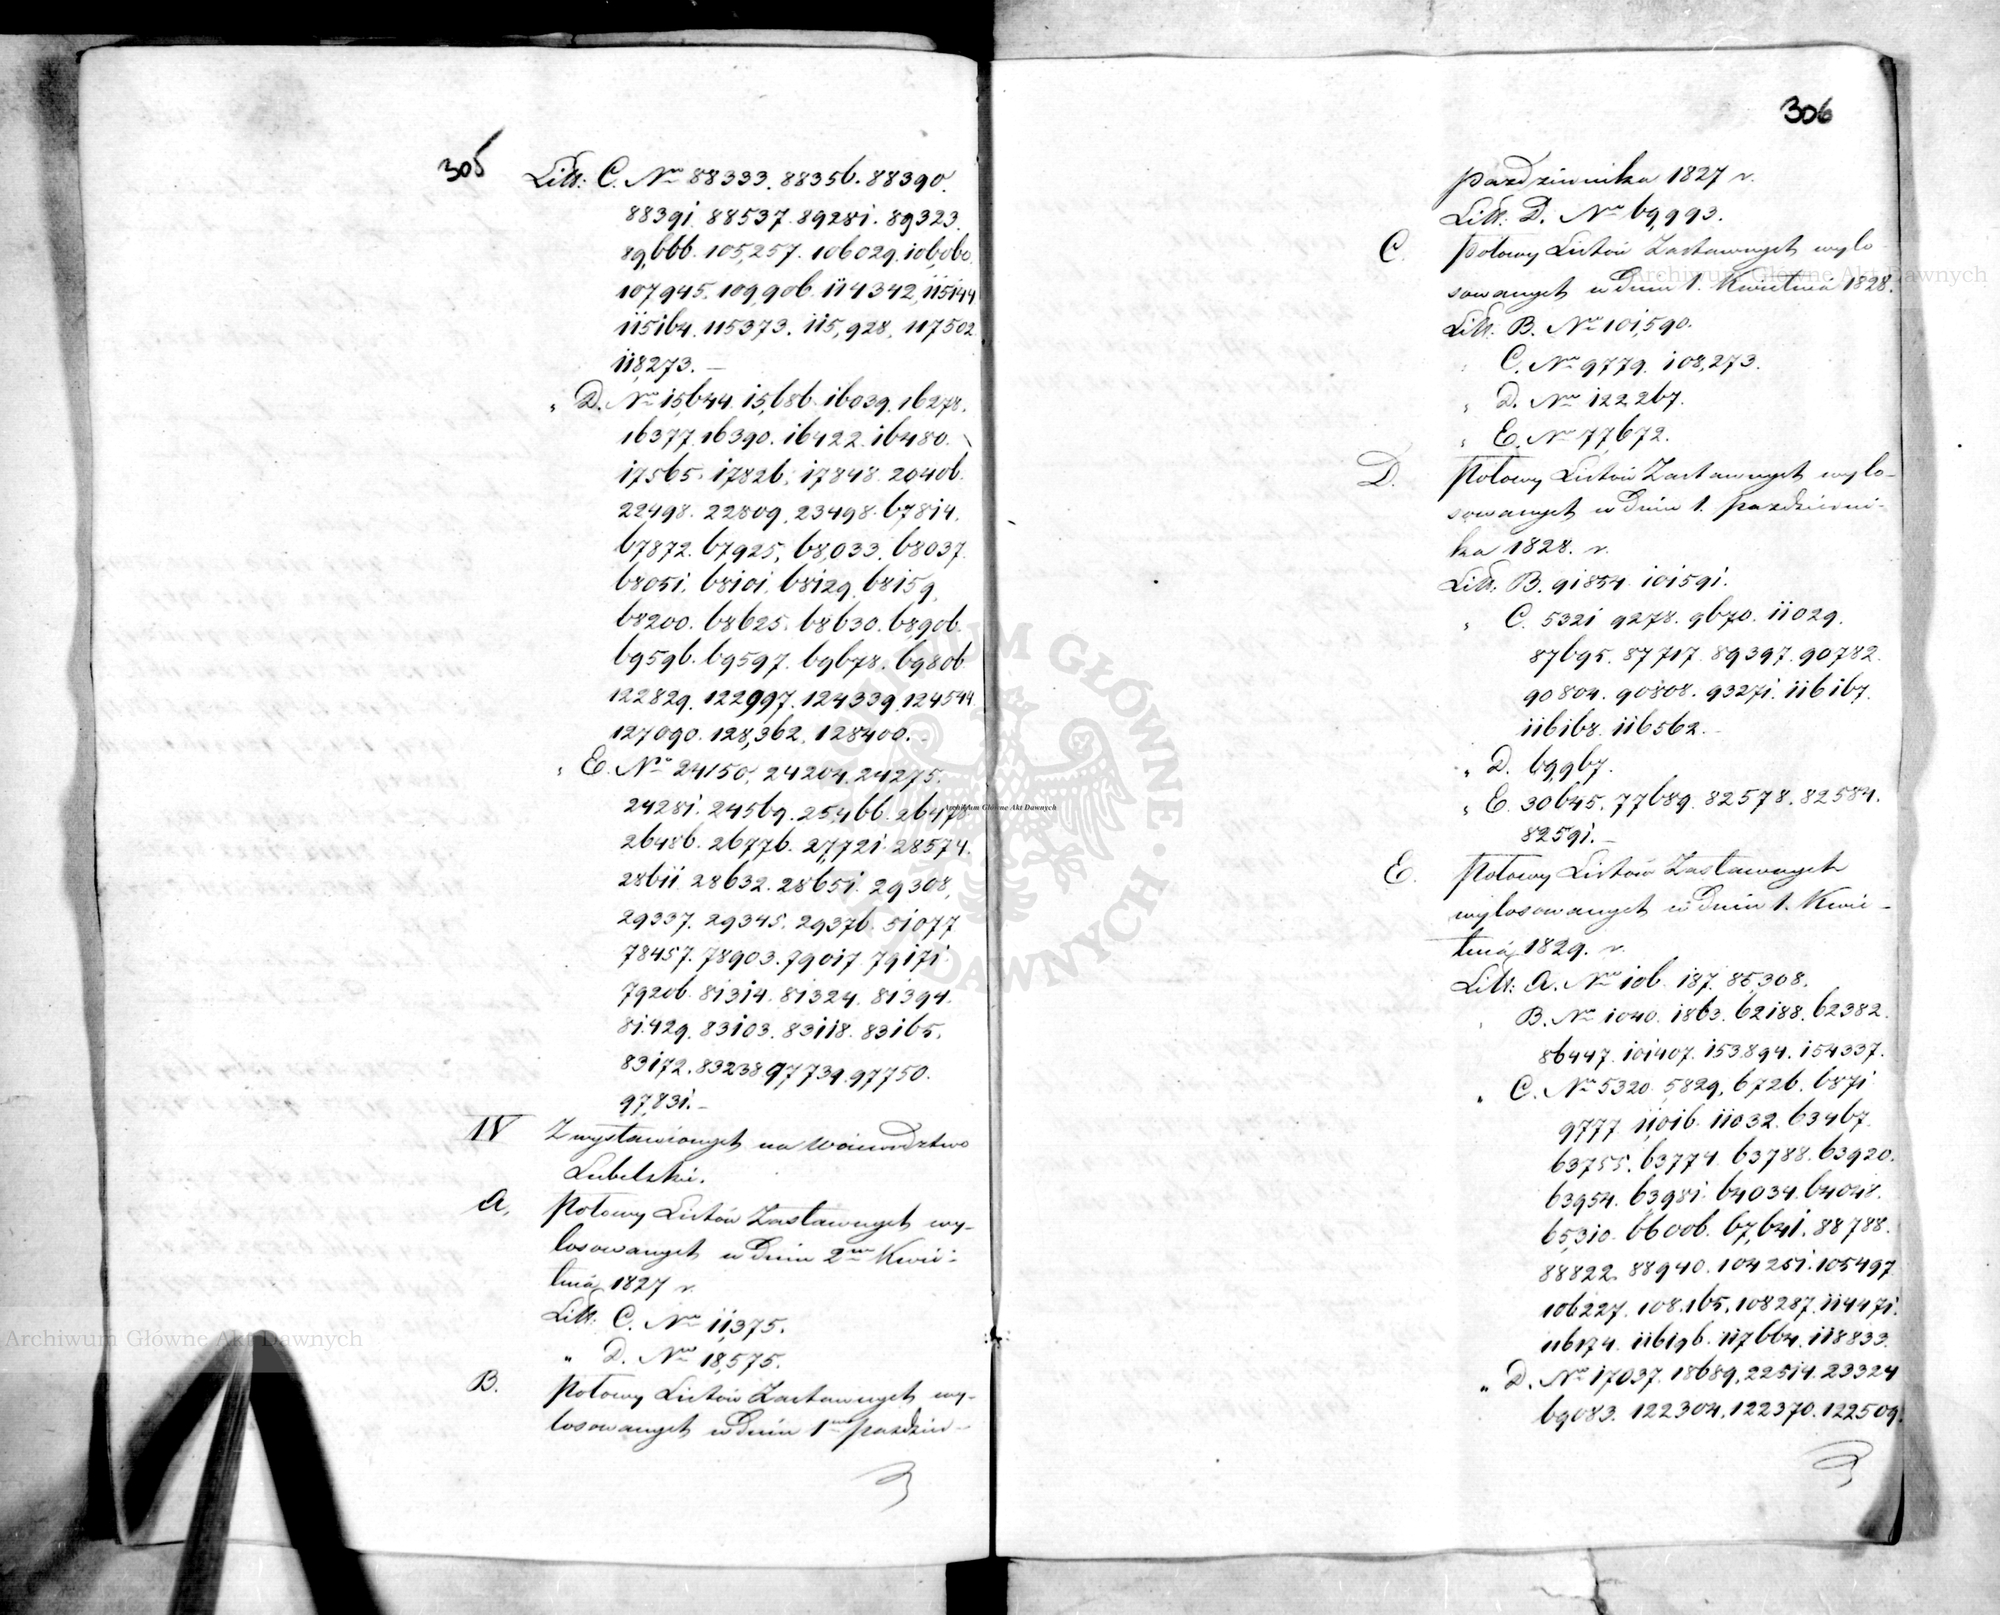 305
Litt: C. Nro 88333. 88356. 88390.
88391. 88537. 89281. 89323.
89,666. 105,257. 106029. 106,060.
107945. 109,906. 114342. 115144
115164. 115373. 115,928. 117502
118,273. —
" D. Nro 15,644. 15,686. 16039. 16278.
16377. 16390. 16422. 16480.
17565. 17826. 17848. 20406.
22498. 22809. 23498. 67814.
67872. 67925. 68,033. 68037.
68051. 68101. 68129. 68159.
68200. 68625. 68630. 68906.
69596. 69597. 69678. 69806
122829. 122997. 124339. 124544
127090. 128,362. 128400. —
" E. Nro 24150. 24204. 24275.
24281. 24569. 25,466. 26478.
26486. 26776. 27,721. 28574.
28611. 28632. 28651. 29308.
29337. 29345. 29376. 51077
78457. 78903. 79017. 79171
79206. 81314. 81324. 81394.
81429. 83103. 83118. 83165.
83172. 83238. 97739. 97750.
97,831. —
IV Z wystawionych na Woiewodztwo
Lubelskie.
A. Połowy Listów Zastawnych wy-
losowanych w dniu 2go Kwie-
tnia 1827 r.
Litt. C. Nro 11,375.
" D. Nro 18,575.
B. Połowy Listów Zastawnych wy-
losowanych w dniu 1go Pazdzier-
306
Pazdziernika 1827 r.
Litt. D. Nro 69,993.
C. Połowy Listów Zastawnych wylo
sowanych w dniu 1. Kwietnia 1828.
Litt. B. Nro 101,590.
" C. Nro 9779. 108,273.
" D. Nro 122267.
" E. Nro 77672.
D. Połowy Listów Zastawnych wylo-
sowanych w dniu 1. Pazdzierni-
ka 1828. r.
Litt. B. 91854. 101591.
" C. 5321. 9278. 9670. 11029.
87695. 87717. 89397. 90782.
90804. 90808. 93271. 116167.
116168. 116562. —
" D. 69,967.
" E. 30645. 77689. 82578. 82584.
82591. —
E. Połowy Listów Zastawnych
wylosowanych w dniu 1. Kwie-
tnia 1829. r.
Litt: A. Nro 106. 187. 85,308.
" B. Nro 1040. 1863. 62188. 62382.
86447. 101407. 153894. 154337.
" C. Nro 5320. 5829. 6726. 6871
9777. 11,016. 11032. 63467.
63755. 63774. 63788. 63920.
63954. 63981. 64034. 64048.
65,310. 66006. 67,641. 88788.
88822. 88940. 104251. 105497
106227. 108.165. 108287. 114471.
116174. 116196. 117664. 118833.
" D. Nro 17037. 18689. 22514. 23324
69083. 122304. 122370. 122509.
Archiwum Główne Akt Dawnych
Archiwum Główne Akt Dawnych
Archiwum Główne Akt Dawnych
ARCHIWUM GŁÓWNE AKT DAWNYCH